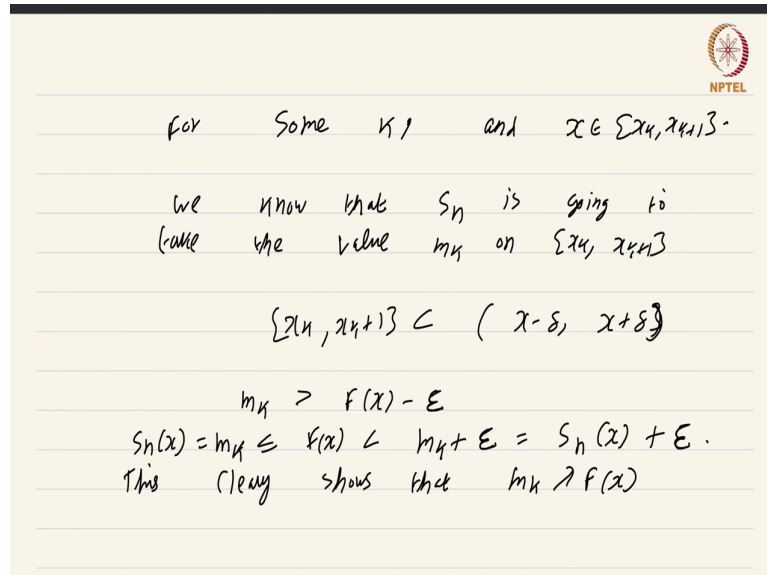 NPTEL
For Some K, and x ∈ [x_k, x_{k+1}].
we know that S_n is going to
take the value m_k on [x_k, x_{k+1}]
[x_k, x_{k+1}] ⊂ (x-δ, x+δ)
m_k > F(x) - ε
S_n(x) = m_k ≤ F(x) < m_k + ε = S_n(x) + ε.
This clearly shows that m_k ↗ F(x)